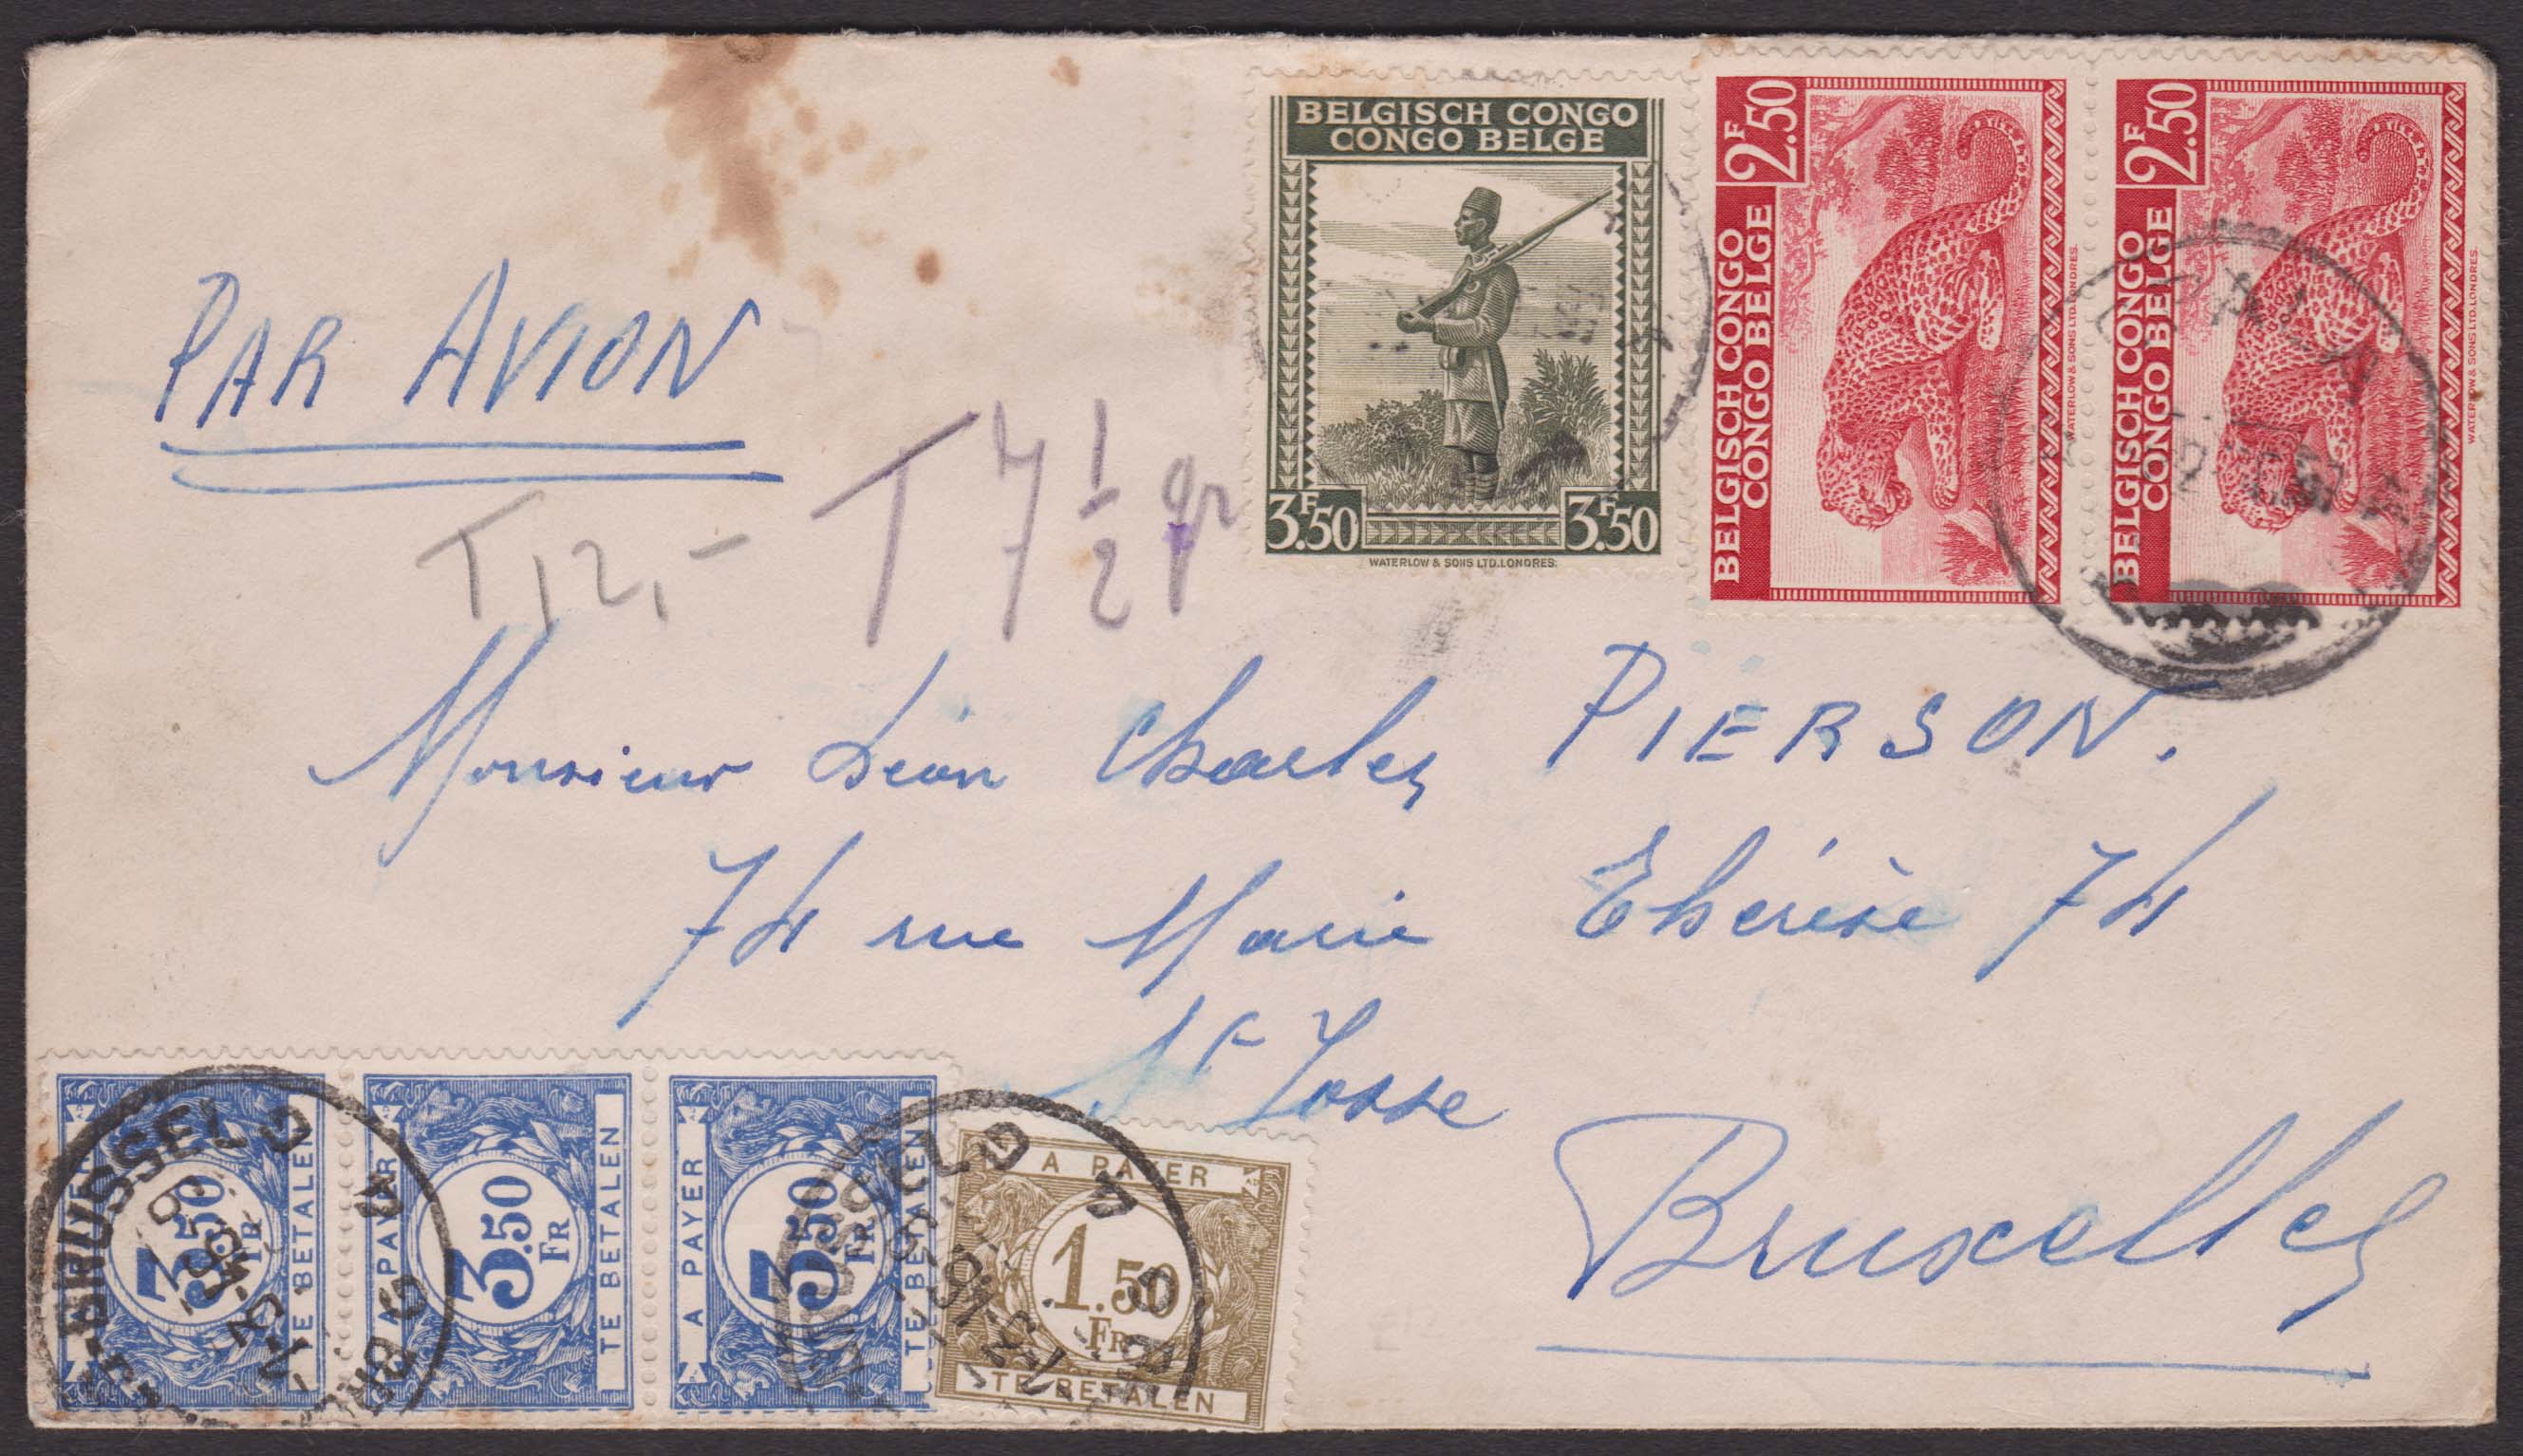 BELGISCH CONGO
CONGO BELGE
3F.50 3F.50
WATERLOW & SONS LTD. LONDRES.
2F.50
BELGISCH CONGO
CONGO BELGE
WATERLOW & SONS LTD. LONDRES.
2F.50
BELGISCH CONGO
CONGO BELGE
WATERLOW & SONS LTD. LONDRES.
PAR AVION
T 12,-
T 7 1/2 gr
Monsieur Léon Charles PIERSON.
74 rue Marie Thérèse 74
St Josse
Bruxelles
A PAYER
3.50
FR
TE BETALEN
A PAYER
3.50
FR
TE BETALEN
A PAYER
3.50
FR
TE BETALEN
A PAYER
1.50
FR
TE BETALEN
BRUSSEL
BRUSSEL